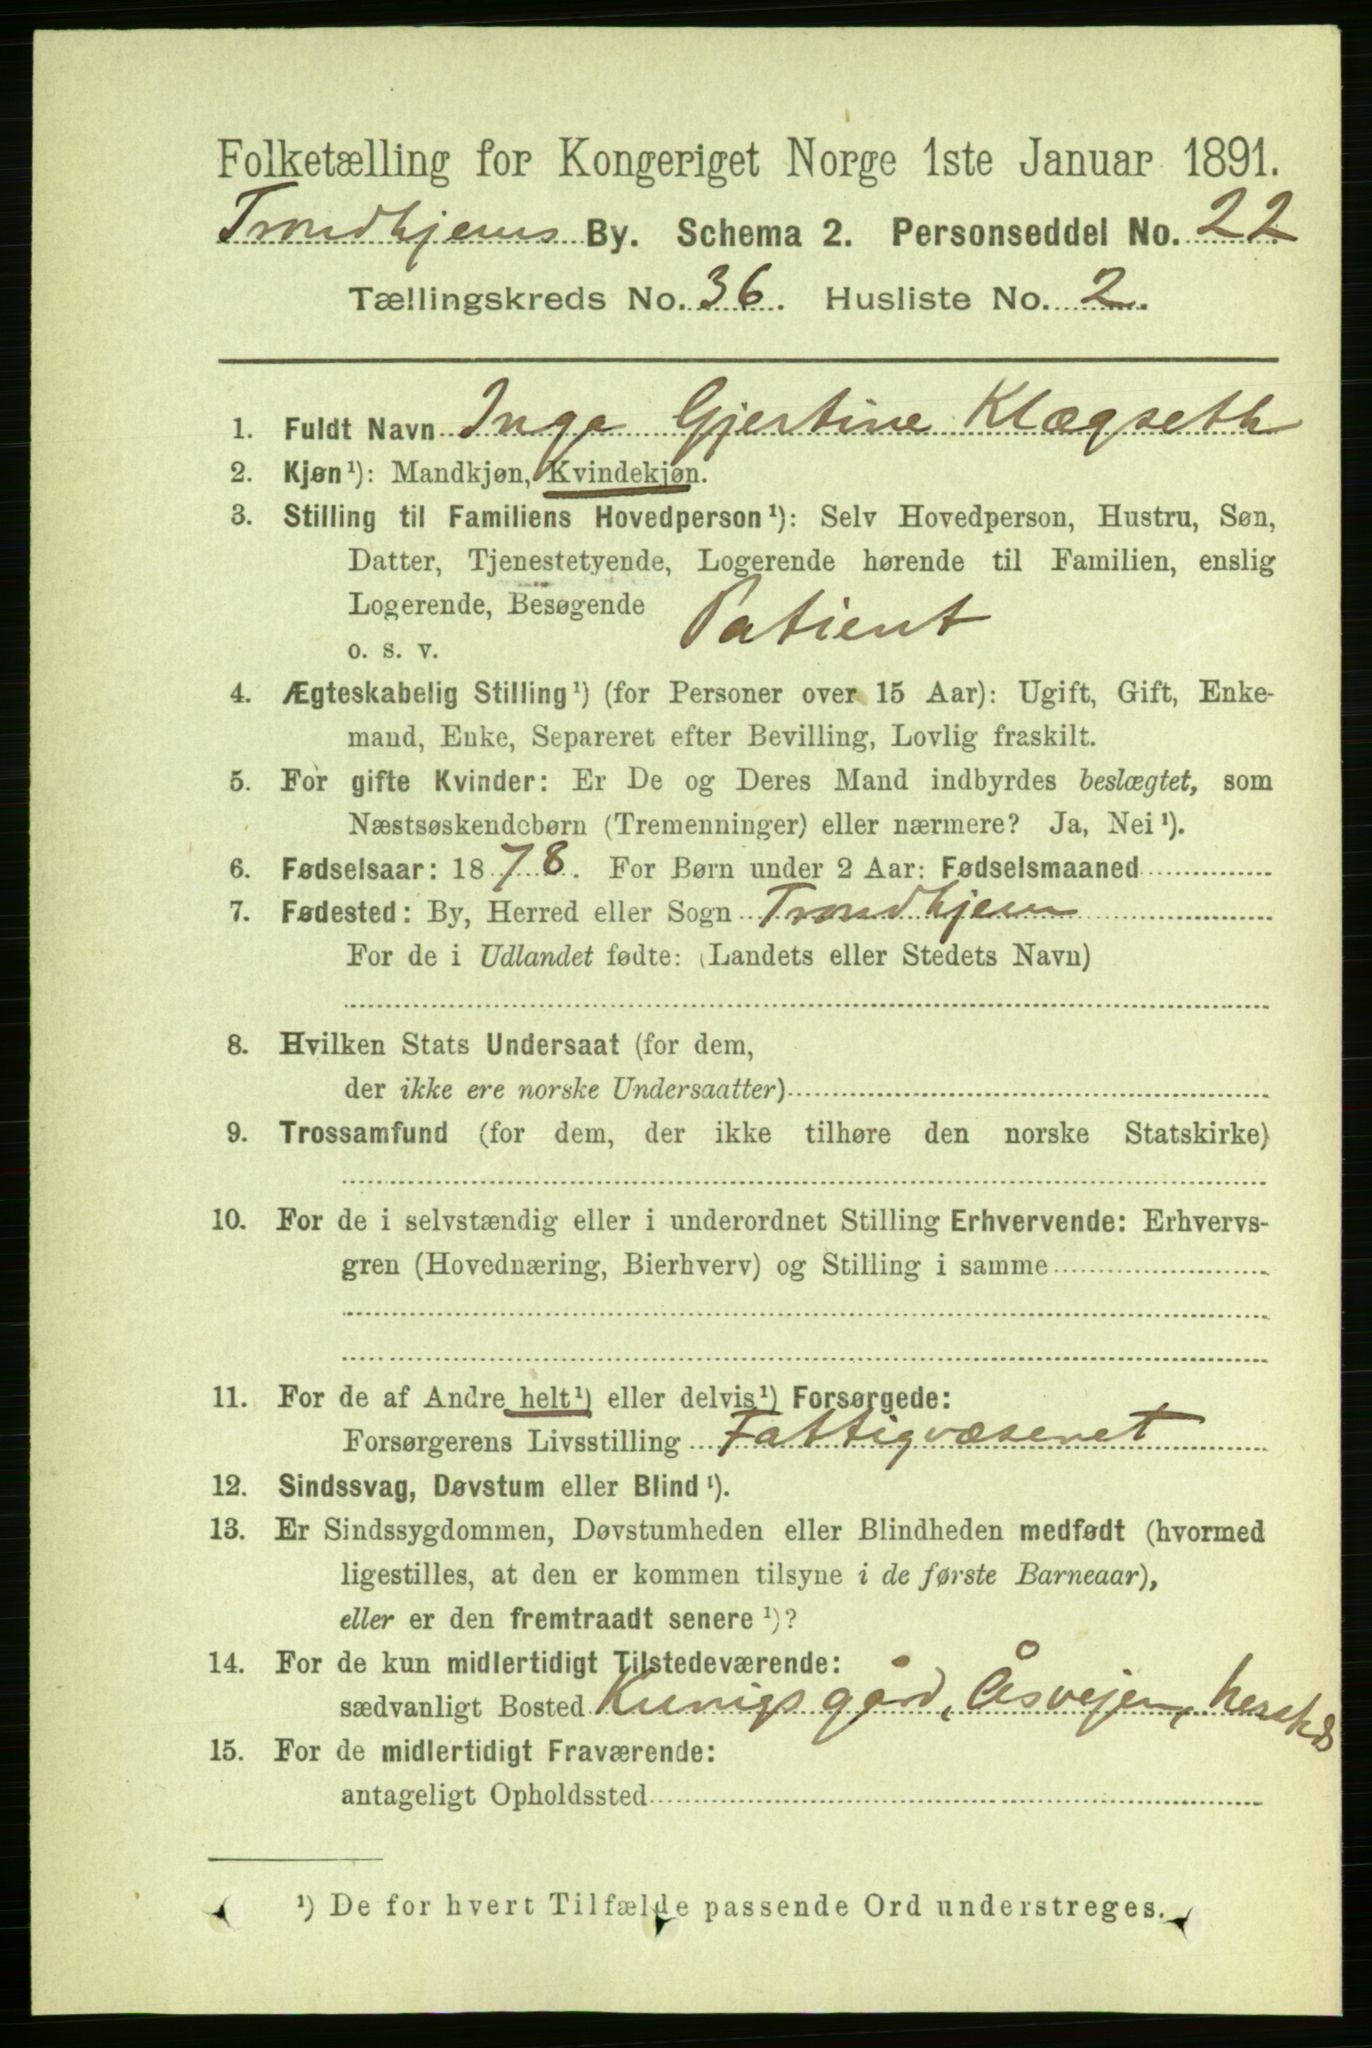 Folketælling for Kongeriget Norge 1ste Januar 1891.
Trondhjems By. Schema 2. Personseddel No. 22
Tællingskreds No. 36. Husliste No. 2.
1. Fuldt Navn Inga Gjertine Klægseth
2. Kjøn¹): Mandkjøn, Kvindekjøn.
3. Stilling til Familiens Hovedperson¹): Selv Hovedperson, Hustru, Søn,
Datter, Tjenestetyende, Logerende hørende til Familien, enslig
Logerende, Besøgende Patient
o. s. v.
4. Ægteskabelig Stilling¹) (for Personer over 15 Aar): Ugift, Gift, Enke-
mand, Enke, Separeret efter Bevilling, Lovlig fraskilt.
5. For gifte Kvinder: Er De og Deres Mand indbyrdes beslægtet, som
Næstsøskendebørn (Tremenninger) eller nærmere? Ja, Nei¹).
6. Fødselsaar: 1878. For Børn under 2 Aar: Fødselsmaaned
7. Fødested: By, Herred eller Sogn Trondhjem
For de i Udlandet fødte: (Landets eller Stedets Navn)
8. Hvilken Stats Undersaat (for dem,
der ikke ere norske Undersaatter)
9. Trossamfund (for dem, der ikke tilhøre den norske Statskirke)
10. For de i selvstændig eller i underordnet Stilling Erhvervende: Erhvervs-
gren (Hovednæring, Bierhverv) og Stilling i samme
11. For de af Andre helt¹) eller delvis¹) Forsørgede:
Forsørgerens Livsstilling Fattigvæsenet
12. Sindssvag, Døvstum eller Blind¹).
13. Er Sindssygdommen, Døvstumheden eller Blindheden medfødt (hvormed
ligestilles, at den er kommen tilsyne i de første Barneaar),
eller er den fremtraadt senere¹)?
14. For de kun midlertidigt Tilstedeværende:
sædvanligt Bosted Kunigs gård, Åsvejen,
15. For de midlertidigt Fraværende:
antageligt Opholdssted
¹) De for hvert Tilfælde passende Ord understreges.